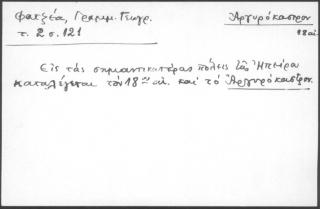 Φατζέα, Γραμμ. Γεωγρ.
τ. 2 σ. 121
Ἀργυρόκαστρον
18 αἰ.
Εἰς τάς σημαντικωτέρας πόλεις τῆς Ἠπείρου
καταλέγεται τόν 18ον αἰ. καί τό Ἀργυρόκαστρον.